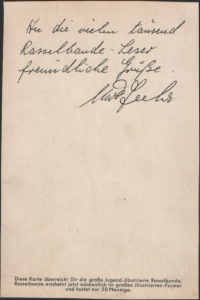 An die vielen tausend
Rasselbande-Leser
freundliche Grüße.
Diese Karte überreicht Dir die große Jugend-Illustrierte Rasselbande.
Rasselbande erscheint jetzt wöchentlich in großem Illustrierten-Format
und kostet nur 50 Pfennige.